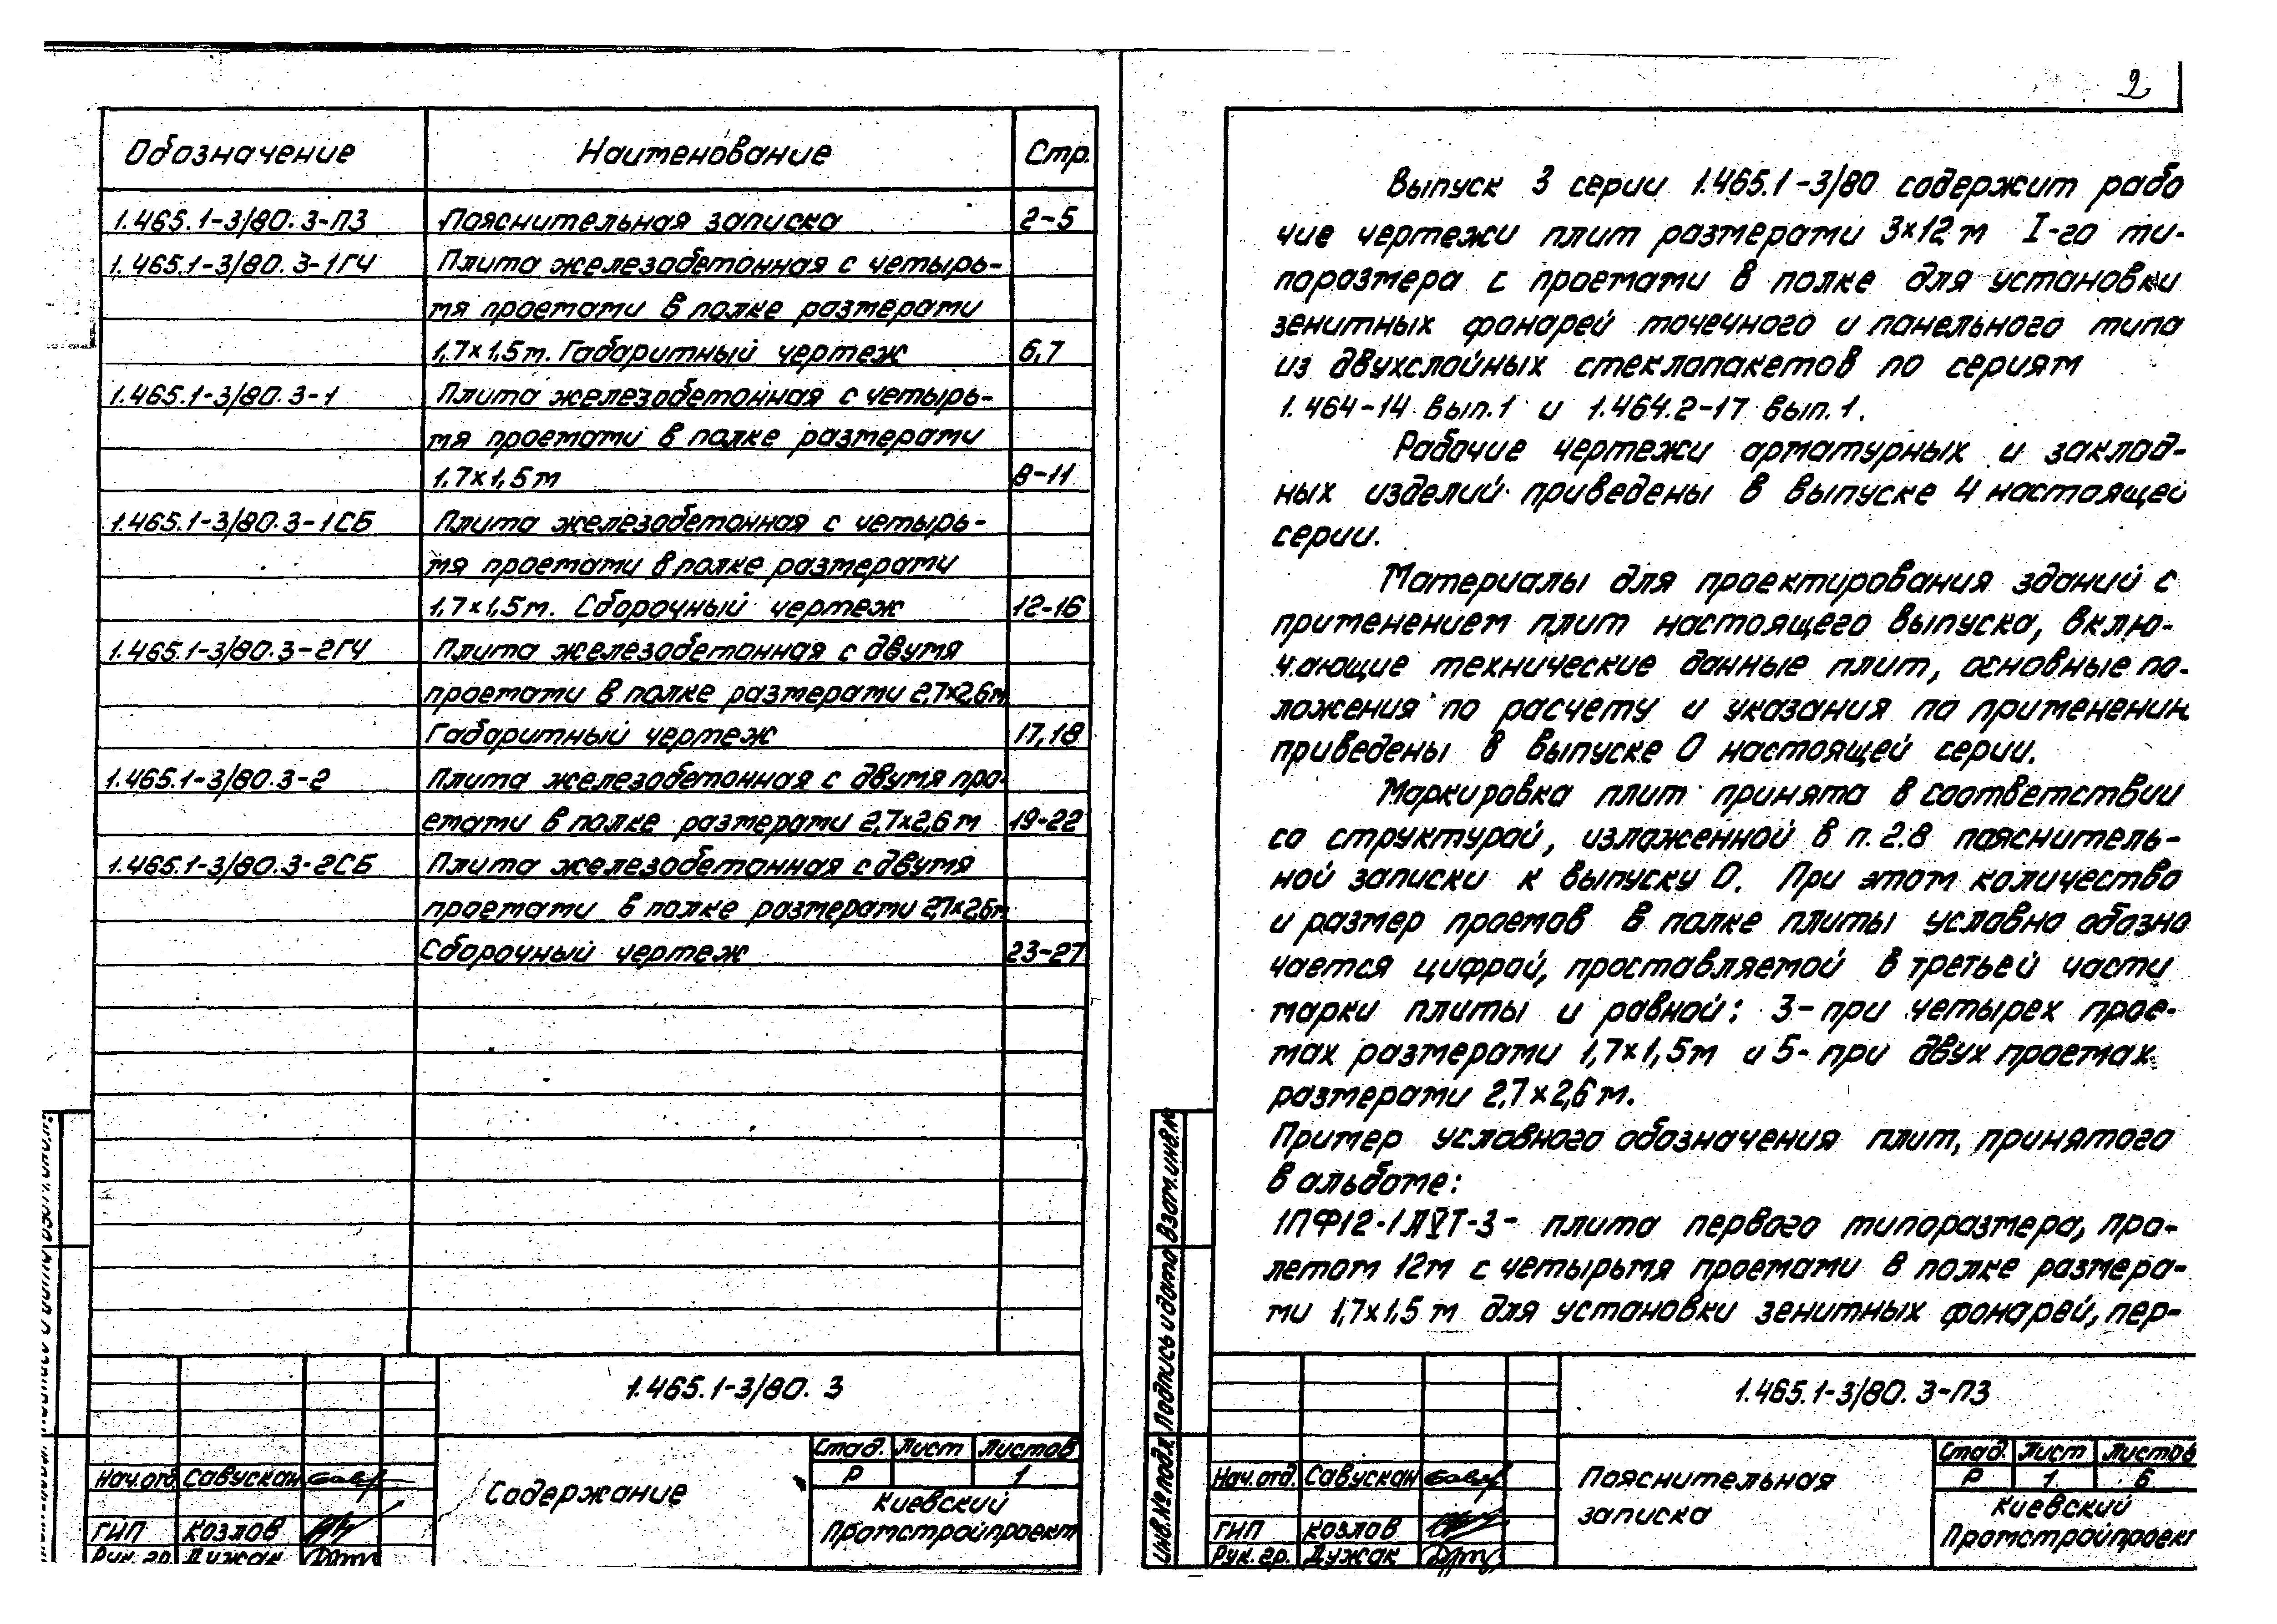 Обозначение Наименование Стр.
1.465.1-3/80.3-ПЗ Пояснительная записка 2-5
1.465.1-3/80.3-1ГЧ Плита железобетонная с четырь-
мя проемами в полке размерами
1,7×1,5м. Габаритный чертеж 6,7
1.465.1-3/80.3-1 Плита железобетонная с четырь-
мя проемами в полке размерами
1,7×1,5м 8-11
1.465.1-3/80.3-1СБ Плита железобетонная с четырь-
мя проемами в полке размерами
1,7×1,5м. Сборочный чертеж 12-16
1.465.1-3/80.3-2ГЧ Плита железобетонная с двумя
проемами в полке размерами 2,7×2,6м
Габаритный чертеж 17,18
1.465.1-3/80.3-2 Плита железобетонная с двумя про-
емами в полке размерами 2,7×2,6м 19-22
1.465.1-3/80.3-2СБ Плита железобетонная с двумя
проемами в полке размерами 2,7×2,6м
Сборочный чертеж 23-27
1.465.1-3/80. 3
Содержание
Стад. Лист Листов
Р 1
Киевский
Промстройпроект
Нач.отд. Савускан
ГИП Козлов
Рук. гр. Дужак
2
Выпуск 3 серии 1.465.1-3/80 содержит рабо
чие чертежи плит размерами 3×12м I-го ти-
поразмера с проемами в полке для установки
зенитных фонарей точечного и панельного типа
из двухслойных стеклопакетов по сериям
1.464-14 вып.1 и 1.464.2-17 вып.1.
Рабочие чертежи арматурных и заклад-
ных изделий приведены в выпуске 4 настоящей
серии.
Материалы для проектирования зданий с
применением плит настоящего выпуска, вклю-
чающие технические данные плит, основные по-
ложения по расчету и указания по применении
приведены в выпуске 0 настоящей серии.
Маркировка плит принята в соответствии
со структурой, изложенной в п. 2.8 пояснитель-
ной записки к выпуску 0. При этом количество
и размер проемов в полке плиты условно обозна
чается цифрой, проставляемой в третьей части
марки плиты и равной: 3-при четырех прое-
мах размерами 1,7×1,5м и 5- при двух проемах
размерами 2,7×2,6м.
Пример условного обозначения плит, принятого
в альбоме:
1ПФ12-1АVТ-3- плита первого типоразмера, про-
летом 12м с четырьмя проемами в полке размера-
ми 1,7×1,5 м для установки зенитных фонарей, пер-
Взам.инв.№
Подпись и дата
Инв.№ подл.
1.465.1-3/80. 3-ПЗ
Пояснительная
записка
Стад. Лист Листов
Р 1 6
Киевский
Промстройпроект
Нач.отд. Савускан
ГИП Козлов
Рук. гр. Дужак